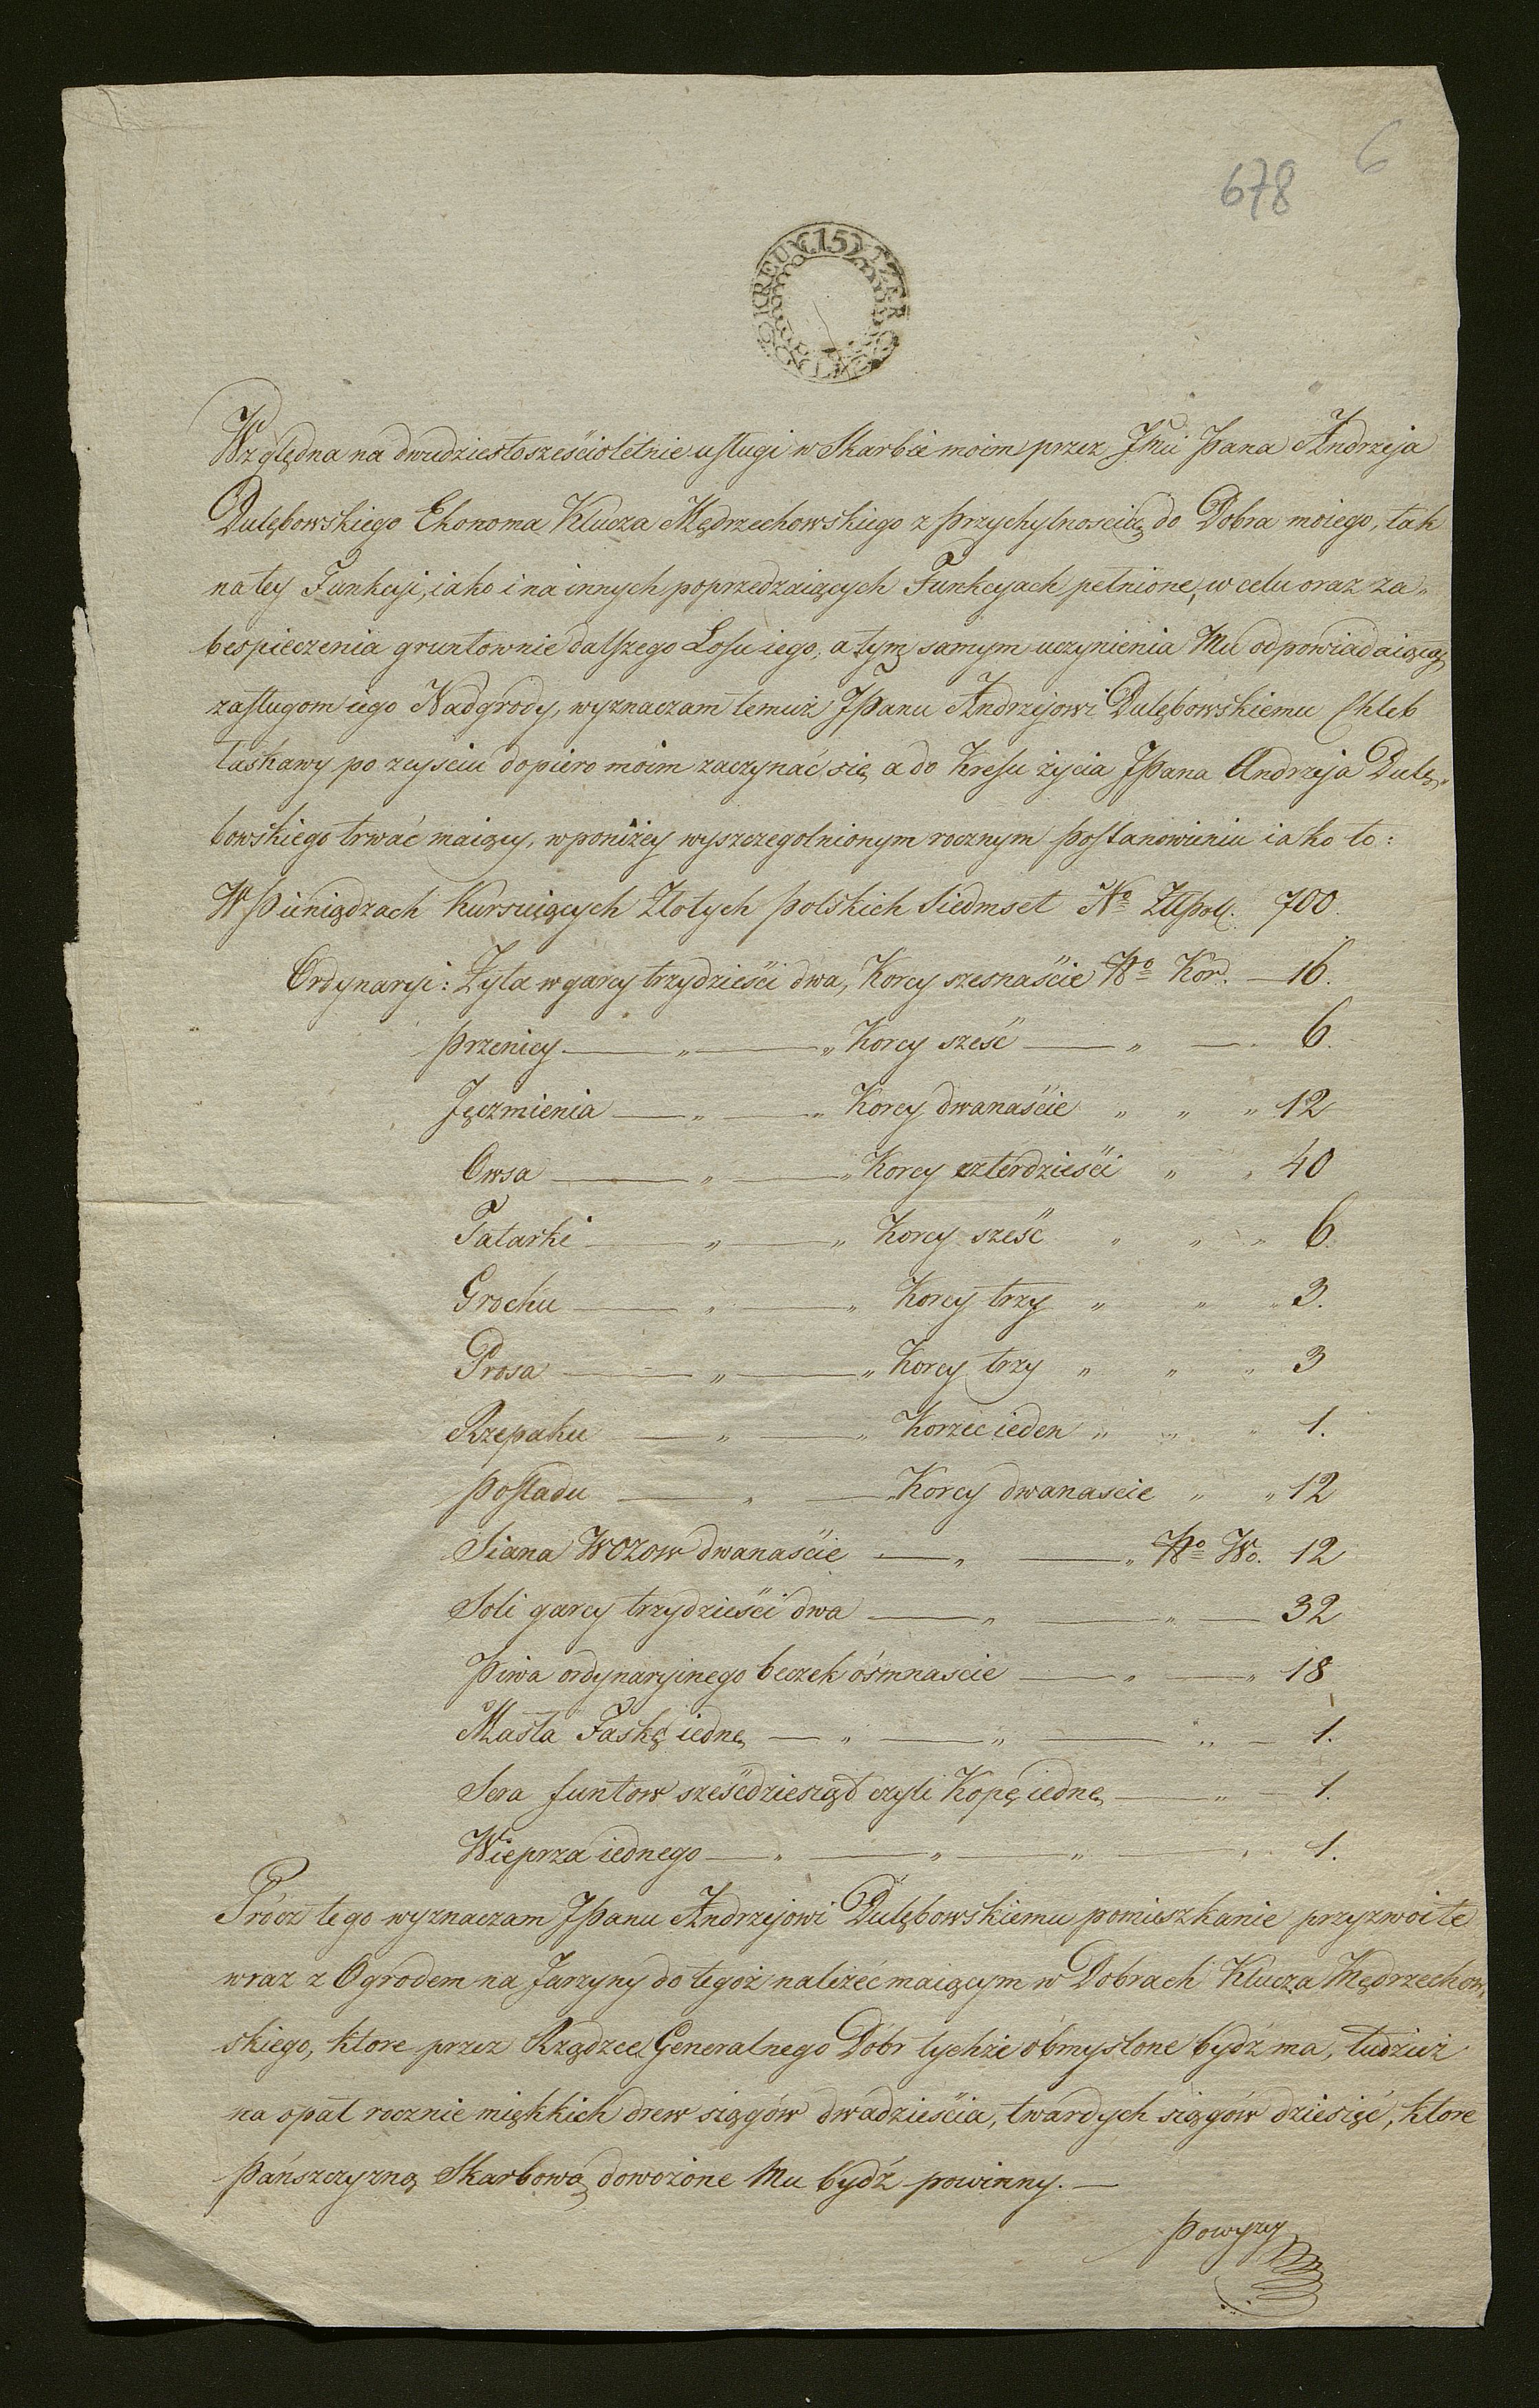 6
678
15 KREUTZER
Względna na dwudziestosześcioletnie usługi w Skarbie moim przez Jmci Pana Andrzeja
Dulębowskiego Ekonoma Klucza Mędrzechowskiego z przychylnoscią do Dobra moiego, tak
na tey Funkcyi, iako i na innych poprzedzaiących Funkcyach pełnione, w celu oraz za„
bespieczenia gruntownie dalszego Losu iego, a tym samym uczynienia Mu odpowiadaiącą
zasługom iego Nadgrody, wyznaczam temuż JPanu Andrzejowi Dulębowskiemu Chleb
łaskawy po zeyściu dopiero moim zaczynać się, a do Kresu życia JPana Andrzeja Dulę„
bowskiego trwać maiący, w poniżey wyszczegolnionym rocznym postanowieniu iako to:
W Pieniądzach Kursuiących Złotych polskich Siedmset No Złpol. 700.
Ordynaryi: Zyta w garcy trzydzieści dwa, Korcy szesnaście No Kor. — 16.
Przenicy — „ — „ Korcy sześć — „ — 6.
Jęczmienia — „ — „ Korcy dwanaście „ „ „ 12
Owsa — „ — „ Korcy czterdzieści „ „ 40
Tatarki — „ — „ Korcy sześć „ „ „ 6
Grochu — „ — „ Korcy trzy „ „ „ 3.
Prosa — „ — „ Korcy trzy „ „ „ 3
Rzepaku — „ — „ Korzec ieden „ „ „ 1.
Posladu — „ — Korcy dwanascie „ „ 12
Siana Wozow dwanaście — „ — „ No Wo. 12
Soli garcy trzydzieści dwa — „ — „ — 32
Piwa ordynaryinego beczek ośmnascie — „ — „ 18
Masła Faskę iednę — „ — „ — „ — 1.
Sera funtow sześćdziesiąt czyli Kopę iednę — „ — 1.
Wieprza iednego — „ — „ — „ — „ 1.
Prócz tego wyznaczam JPanu Andrzejowi Dulębowskiemu pomieszkanie przyzwoite
wraz z Ogrodem na Jarzyny do tegoż należeć maiącym w Dobrach Klucza Mędrzechow„
skiego, ktore przez Rządzcę Generalnego Dóbr tychże obmyslone bydź ma, tudzież
na opał rocznie miękkich drew siągów dwadzieścia, twardych siągów dziesięć, ktore
Pańszczyzną Skarbową dowożone Mu bydź powinny. —
Powyzey